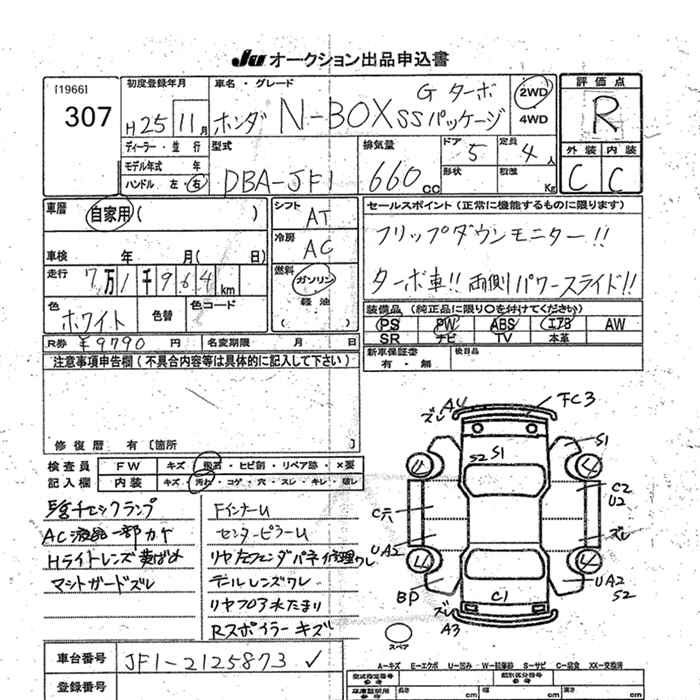 JU オークション出品申込書
[1966]
307
初度登録年月
H25 11月
車名・グレード
ホンダ N-BOX G ターボ SSパッケージ
2WD
4WD
評価点
R
外装 内装
C C
ディーラー・並行
モデル年式 年
ハンドル 左・右
型式
DBA-JF1
排気量
660cc
ドア 5
形状
定員 4人
積載 Kg
車歴
自家用( )
車検 年 月( 日)
走行 7万1千964km
色 ホワイト
色替
色コード
シフト AT
冷房 AC
燃料
ガソリン
軽油
( )
セールスポイント (正常に機能するものに限ります)
フリップダウンモニター!!
ターボ車!! 両側パワースライド!!
装備品 (純正品に限り○を付けてください)
PS PW ABS エアB AW
SR ナビ TV 本革
R券 ¥9790円
名変期限 月 日
新車保証書
有・無
後日品
注意事項申告欄 (不具合内容等は具体的に記入して下さい)
修復歴 有 [箇所 ]
検査員 FW キズ・飛石・ヒビ割・リペア跡・×要
記入欄 内装 キズ・汚れ・コゲ・穴・スレ・キレ・破レ
警告セックランプ
AC液晶一部カケ
Hライトレンズ黄ばみ
マットガードズレ
FインナーU
センターピラーU
リヤ左フェンダパネ修理ワレ
テールレンズワレ
リヤフロア水たまり
Rスポイラーキズ
ズレ A4
FC3
S1
S2 S1
C2
U2
C穴
ズレ
UA2
UA2
S2
BP
C1
ズレ
A3
スペア
車台番号 JF1-2125873 ✓
登録番号
A-キズ E-エクボ U-凹み W-板跡 S-サビ C-腐食 XX-交換済
型式指定番号
参考
類別区分番号
参考
長さ cm cm cm